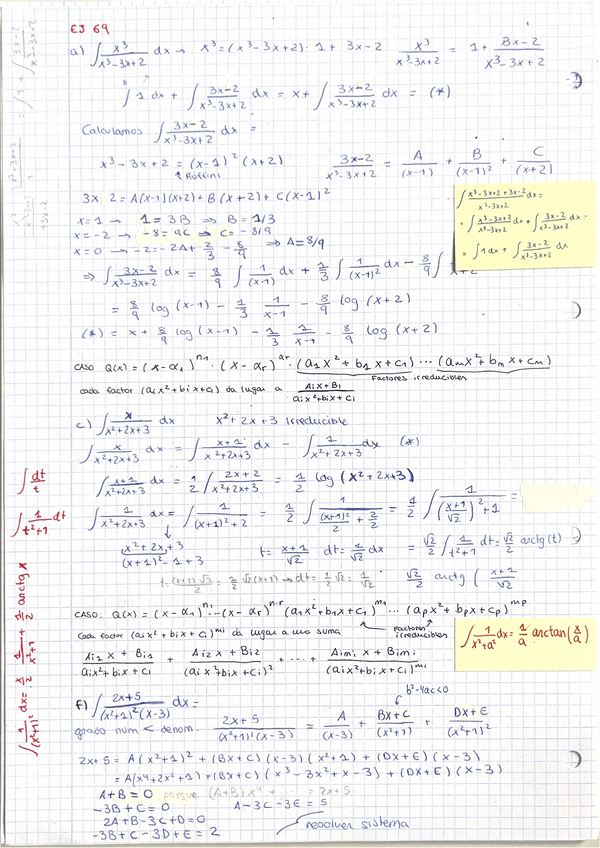 EJ 69
a) ∫ x³/(x³-3x+2) dx → x³ = (x³-3x+2)·1 + 3x-2   x³/(x³-3x+2) = 1 + (3x-2)/(x³-3x+2)
∫ 1 dx + ∫ (3x-2)/(x³-3x+2) dx = x + ∫ (3x-2)/(x³-3x+2) dx = (*)
Calculamos ∫ (3x-2)/(x³-3x+2) dx =
x³-3x+2 = (x-1)²(x+2)   (3x-2)/(x³-3x+2) = A/(x-1) + B/(x-1)² + C/(x+2)
↑ Ruffini
3x 2 = A(x-1)(x+2) + B(x+2) + C(x-1)²
x=1 → 1=3B ⇒ B=1/3
x=-2 → -8=9C ⇒ C=-8/9
x=0 → -2=-2A+2/3 - 8/9 ⇒ A=8/9
∫ (x³-3x+2+3x-2)/(x³-3x+2) dx =
= ∫ (x³-3x+2)/(x³-3x+2) dx + ∫ (3x-2)/(x³-3x+2) dx =
= ∫ 1 dx + ∫ (3x-2)/(x³-3x+2) dx
⇒ ∫ (3x-2)/(x³-3x+2) dx = 8/9 ∫ 1/(x-1) dx + 1/3 ∫ 1/(x-1)² dx - 8/9 ∫
= 8/9 log(x-1) - 1/3 1/(x-1) - 8/9 log(x+2)
(*) = x + 8/9 log(x-1) - 1/3 1/(x-1) - 8/9 log(x+2)
CASO Q(x) = (x-α₁)^n₁ · (x-αr)^αr · (a₁x²+b₁x+c₁) ··· (amx²+bmx+cm)
Factores irreducibles
cada factor (aix²+bix+ci) da lugar a (Aix+Bi)/(aix²+bix+ci)
c) ∫ x/(x²+2x+3) dx   x²+2x+3 irreducible
∫ x/(x²+2x+3) dx = ∫ (x+1)/(x²+2x+3) dx - ∫ 1/(x²+2x+3) dx (*)
∫ (x+1)/(x²+2x+3) dx = 1/2 ∫ (2x+2)/(x²+2x+3) = 1/2 log(x²+2x+3)
∫ 1/(x²+2x+3) dx = ∫ 1/((x+1)²+2) = 1/2 ∫ 1/((x+1)²/2 + 2/2) = 1/2 ∫ 1/(((x+1)/√2)²+1) =
x²+2x+3
(x+1)²-1+3   t=(x+1)/√2   dt=1/√2 dx   = √2/2 ∫ 1/(t²+1) dt = √2/2 arctg(t)
√2/2 arctg((x+1)/√2
CASO: Q(x) = (x-α₁)^n₁ ··· (x-αr)^nr (a₁x²+b₁x+c₁)^m₁ ··· (apx²+bpx+cp)^mp
Factores irreducibles
Cada factor (aix²+bix+ci)^mi da lugar a una suma
(Ai₁x+Bi₁)/(aix²+bix+ci) + (Ai₂x+Bi₂)/(aix²+bix+ci)² + ··· + (Aimi x+Bimi)/(aix²+bix+ci)^mi
∫ 1/(x²+a²) dx = 1/a arctan(x/a)
b²-4ac<0
f) ∫ (2x+5)/((x²+1)²(x-3)) dx =
grado num < denom.   (2x+5)/((x²+1)²(x-3)) = A/(x-3) + (Bx+C)/(x²+1) + (Dx+E)/(x²+1)²
2x+5 = A(x²+1)² + (Bx+C)(x-3)(x²+1) + (Dx+E)(x-3)
= A(x⁴+2x²+1) + (Bx+C)(x³-3x²+x-3) + (Dx+E)(x-3)
A+B=0 porque (A+B)x⁴ + ··· = 2x+5
-3B+C=0   A-3C-3E=5
2A+B-3C+D=0
-3B+C-3D+E=2   resolver sistema
∫ dt/t
∫ 1/(t²+1) dt
∫ 1/(x²+1)² dx = x/2 1/(x²+1) + 1/2 arctg x